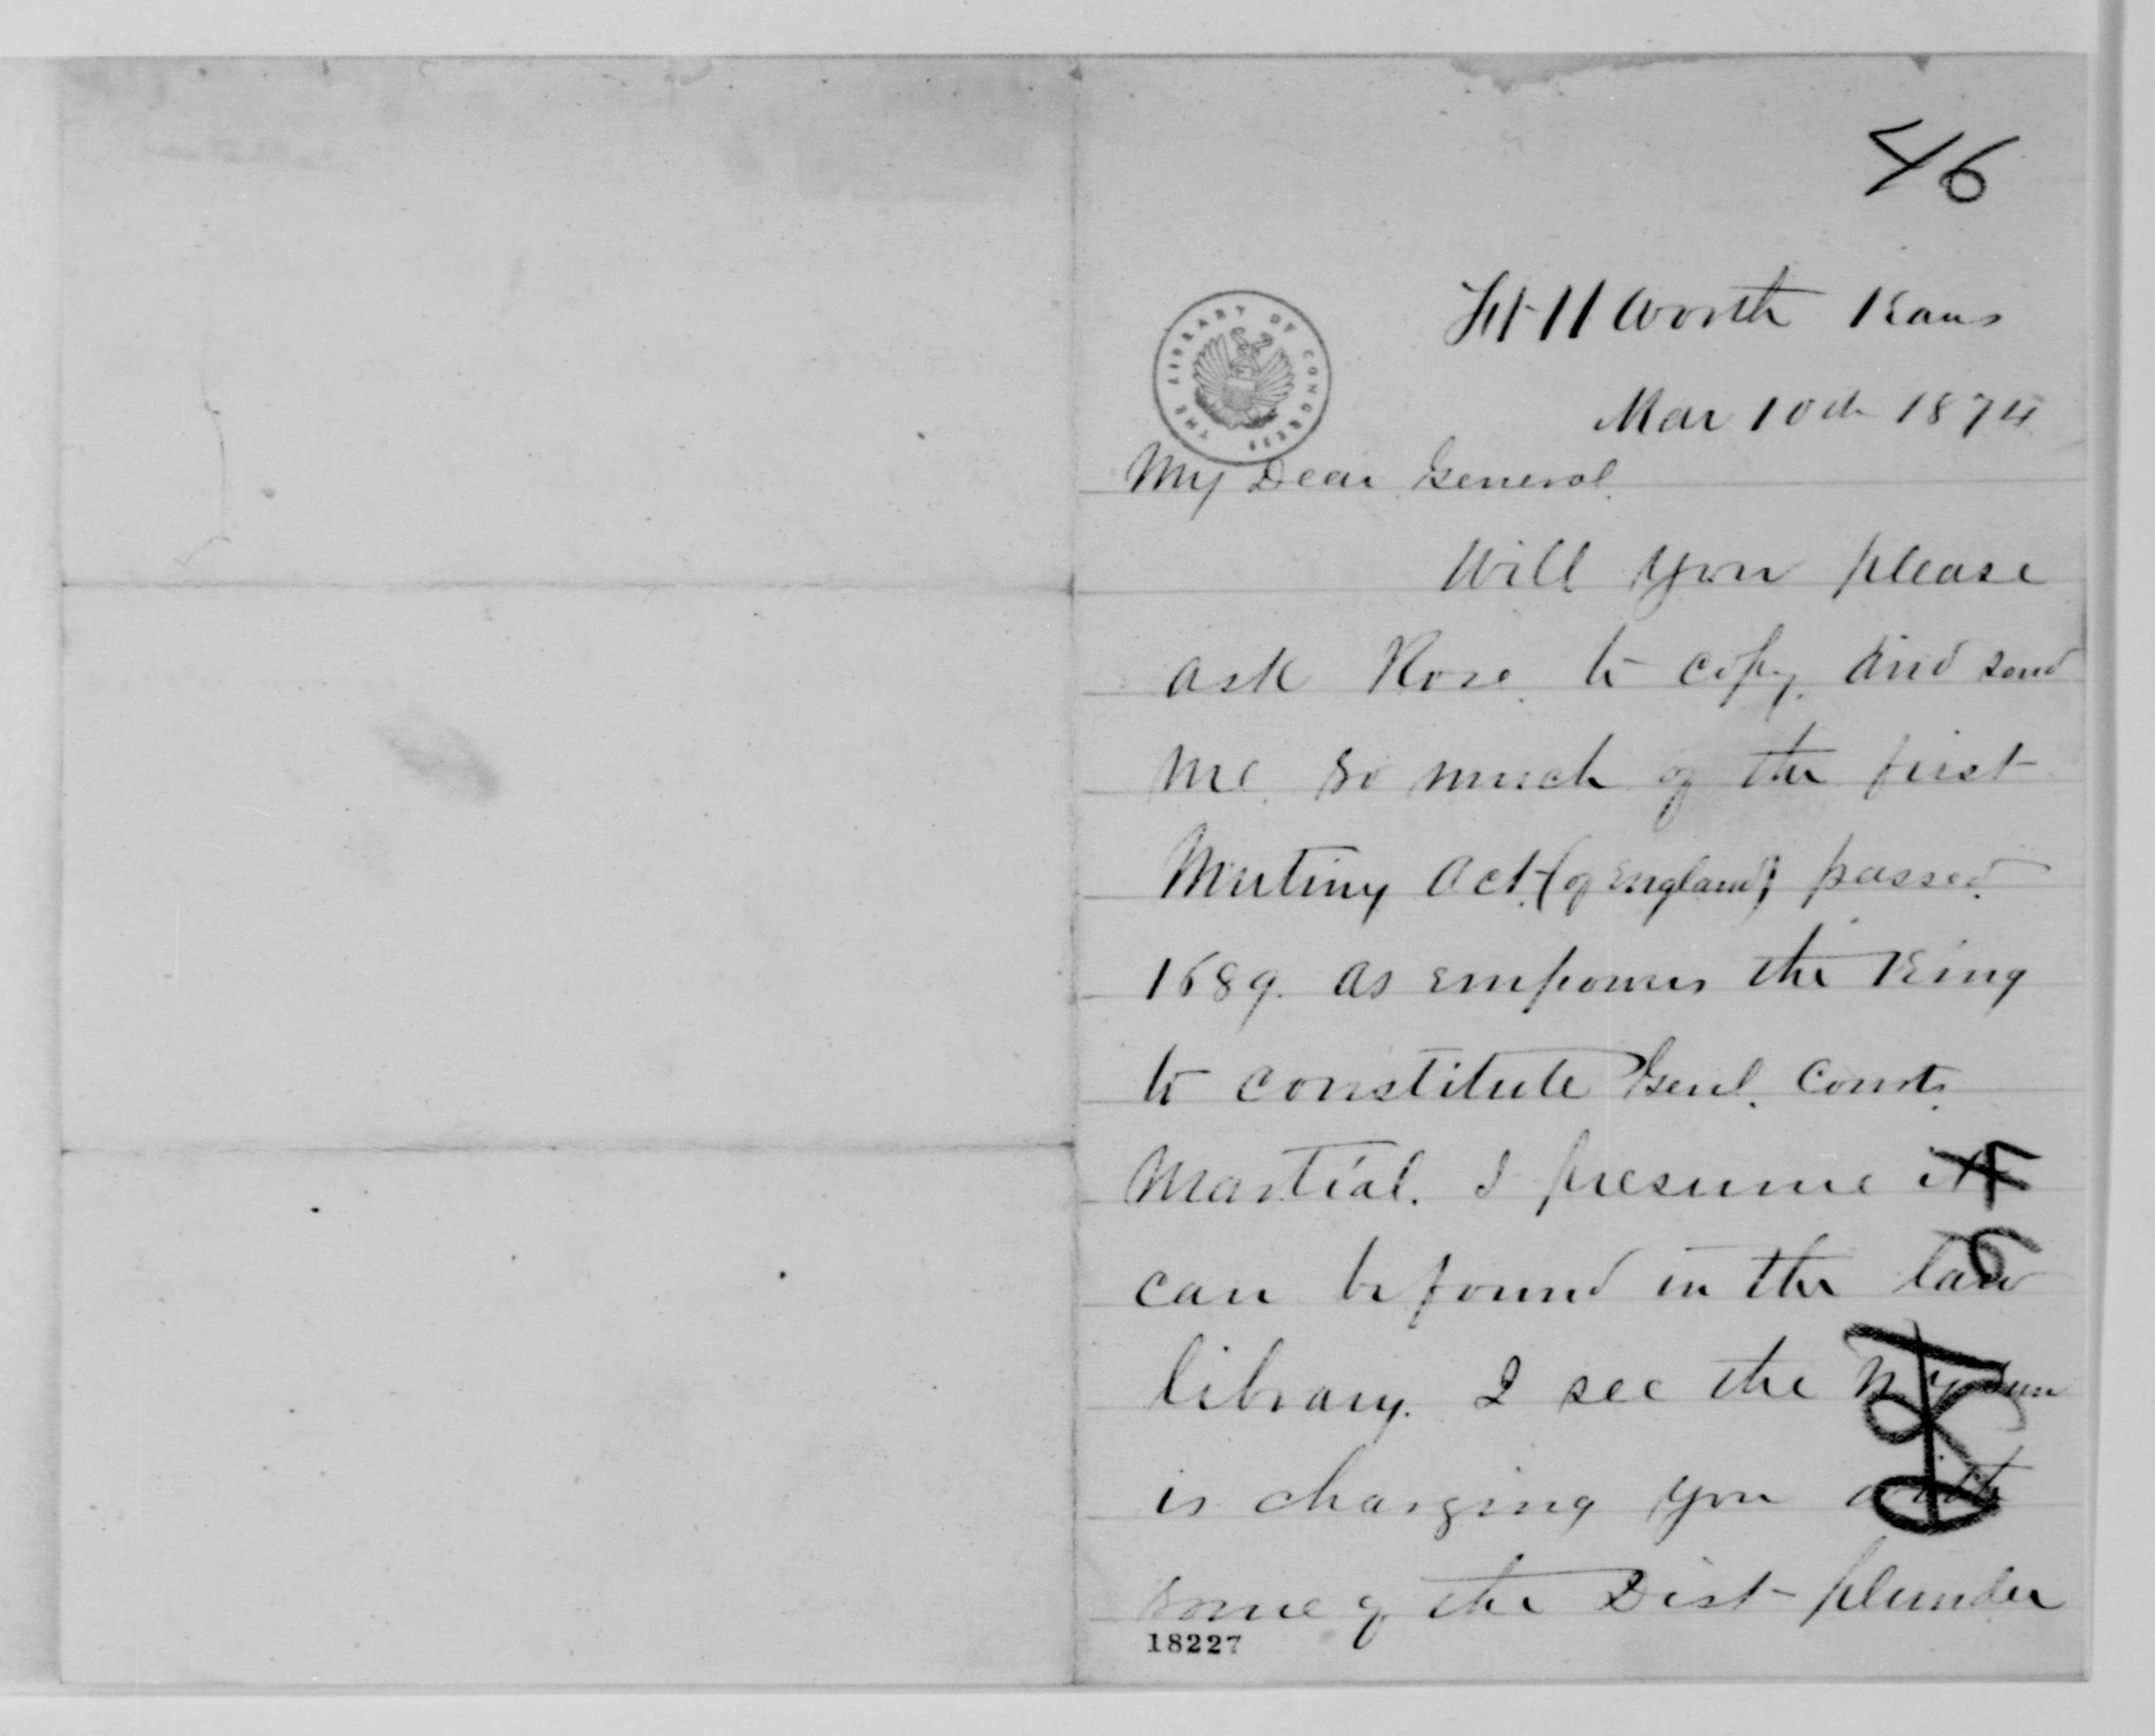 46
Ft H Worth Kans
THE LIBRARY OF CONGRESS
Mar 10th 1874
My Dear General.
Will you please
ask Rose to copy and send
me so much of the first
Mutiny Act (of England) passed
1689. as empowers the King
to constitute Genl. Courts
Martial. I presume it
can be found in the law
library. I see the N.Y. Sun
is charging you with
some of the Dist plunder
18227